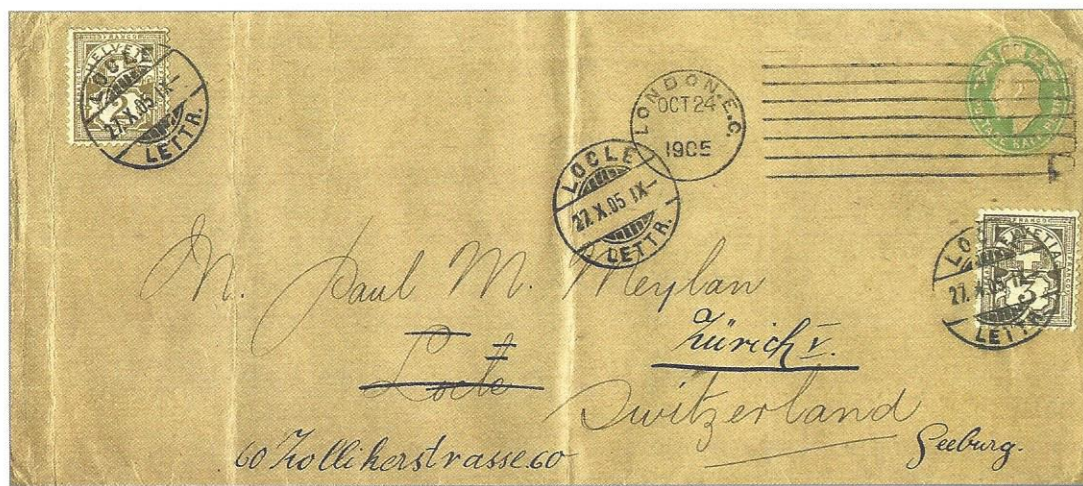 FRANCO
HELVETIA
LOCLE
27.X.05 IX-
LETTR.
LONDON. E.C.
OCT 24
1905
LOCLE
27.X.05 IX-
LETTR.
FRANCO
HELVETIA
LOCLE
27.X.05 IX-
LETTR.
M. Paul M. Meylan
Locle
Zürich V.
Switzerland
60 Zollikerstrasse 60
Seeburg.